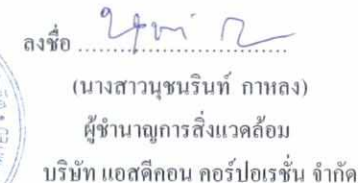 ลงชื่อ
(นางสาวนุชนรินท์ กาหลง)
ผู้ชำนาญการสิ่งแวดล้อม
บริษัท แอสดีคอน คอร์ปอเรชั่น จำกัด